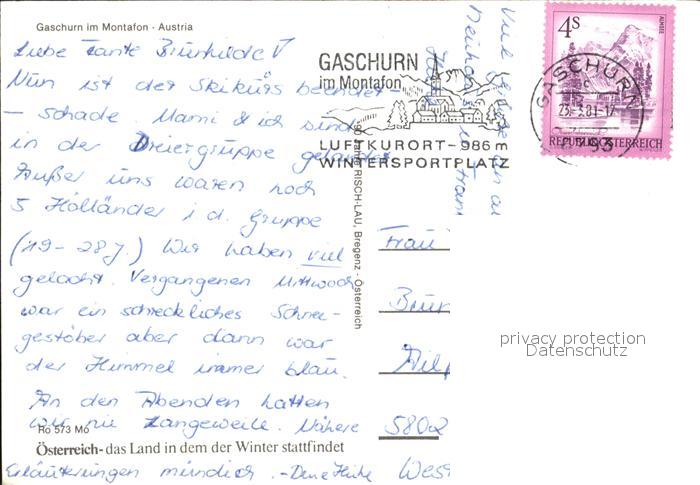 Gaschurn im Montafon - Austria
Liebe Tante Brunhilde!
Nun ist der Skikurs beendet -
- schade. Mami & ich sind
in der Dreiergruppe gelandet
Außer uns waren noch
5 Holländer i d. Gruppe
(19-28J.) Wir haben viel
gelacht. Vergangenen Mittwoch
war ein schreckliches Schnee-
gestöber aber dann war
der Himmel immer blau.
An den Abenden hatten
wir nie Langeweile. Nähere
Ro 573 Mo
Österreich - das Land in dem der Winter stattfindet
Erläuterungen mündlich. - Deine Heike
Viele an
GASCHURN
im Montafon
LUFTKURORT - 986 m
WINTERSPORTPLATZ
90 Jahre RISCH-LAU, Bregenz - Österreich
4S
ALMSEE
REPUBLIK ÖSTERREICH
GASCHURN
6793
Frau
Brun
5802
Wes
privacy protection
Datenschutz